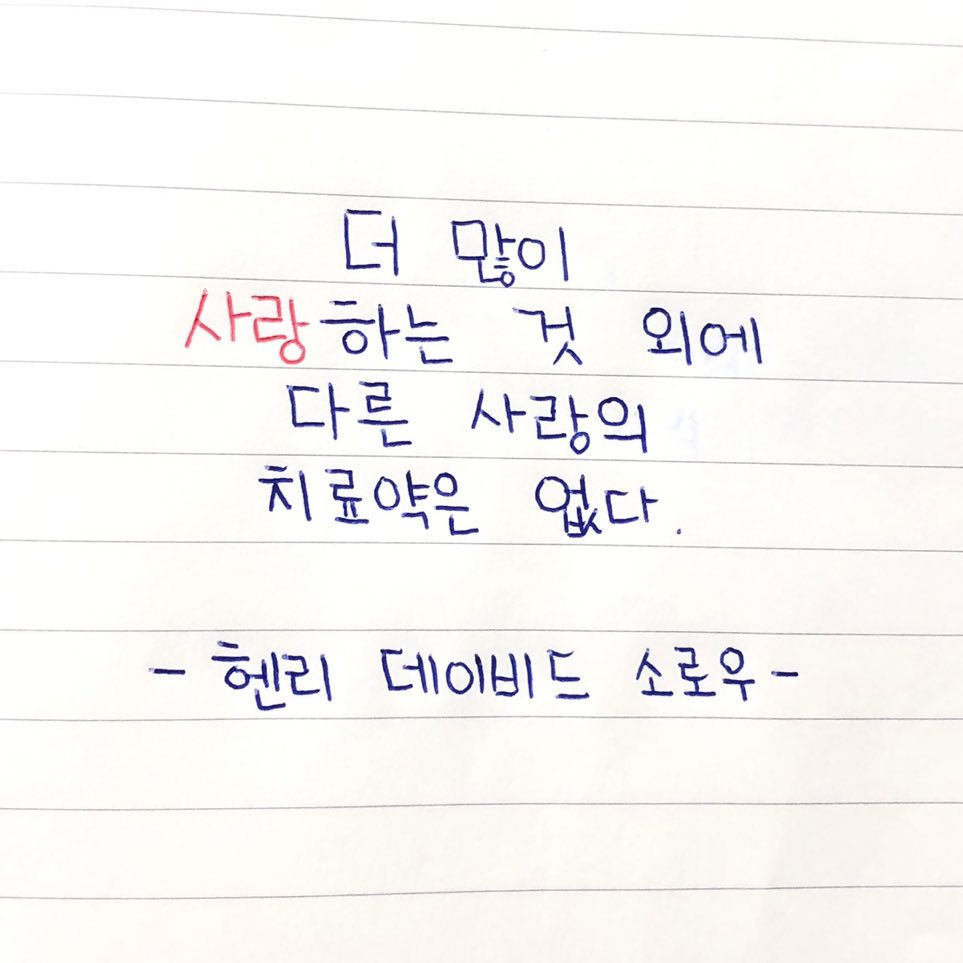 더 많이
사랑하는 것 외에
다른 사랑의
치료약은 없다.
- 헨리 데이비드 소로우 -